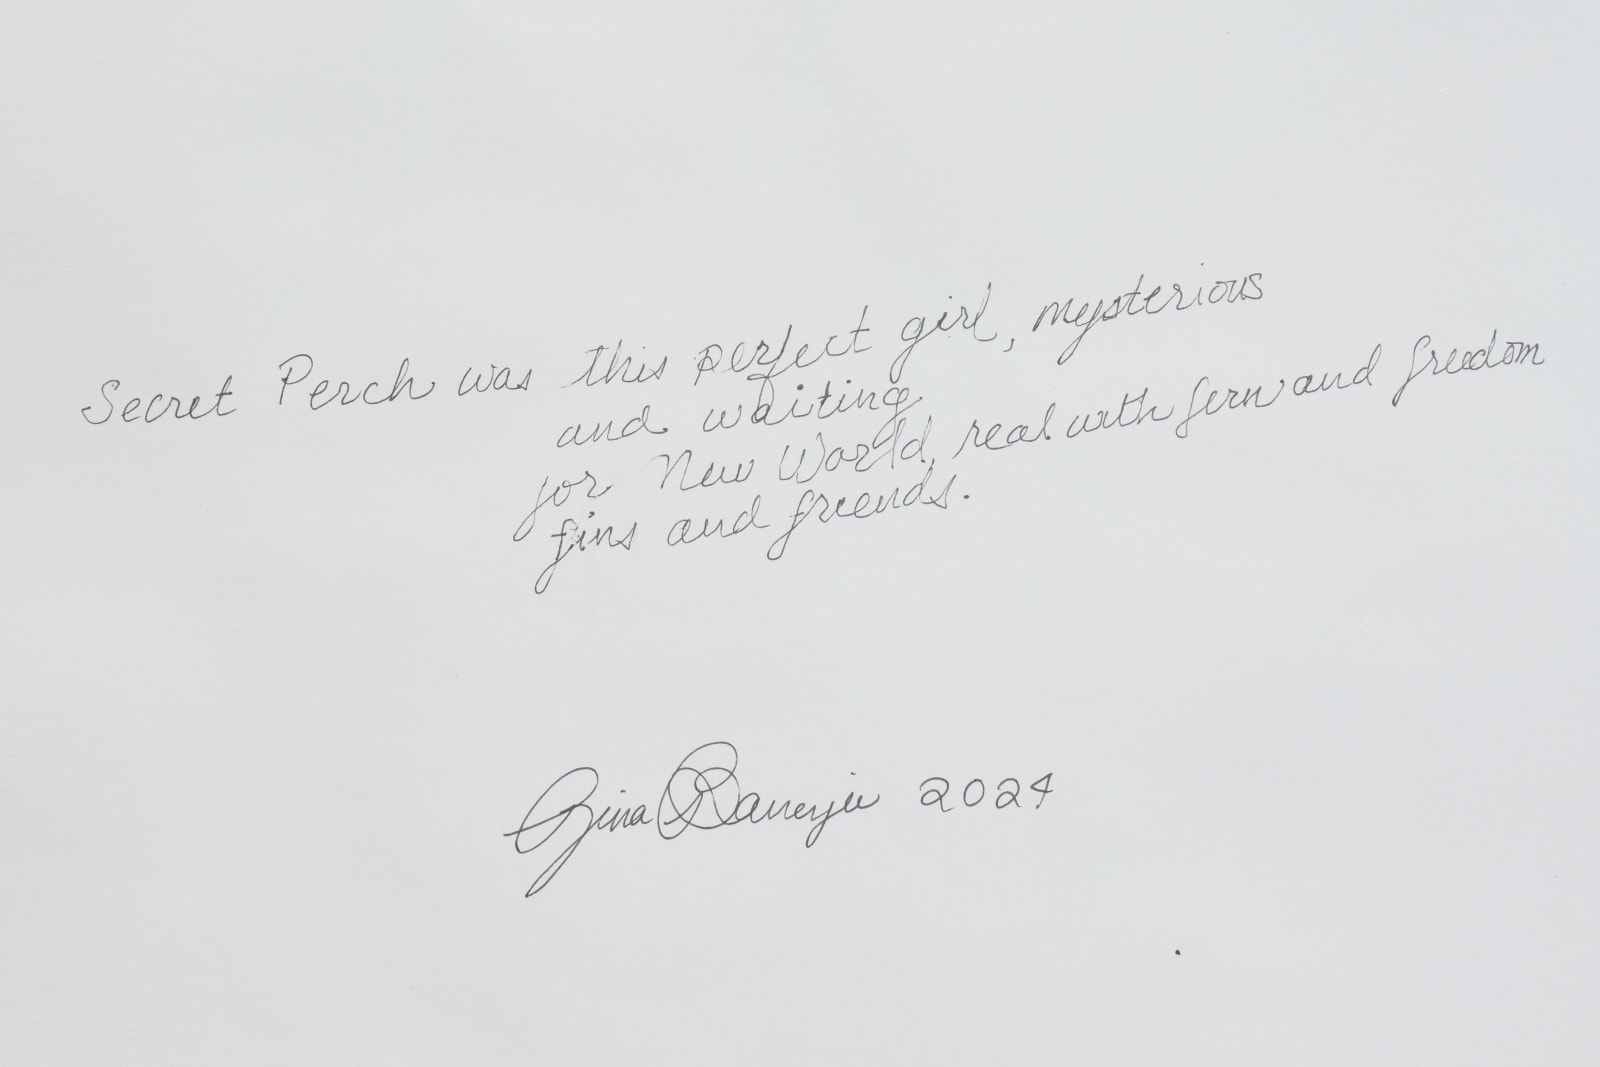 Secret Perch was this perfect girl, mysterious
and waiting
for New World, real with fern and freedom
fins and friends.
Gina Banerjee 2024